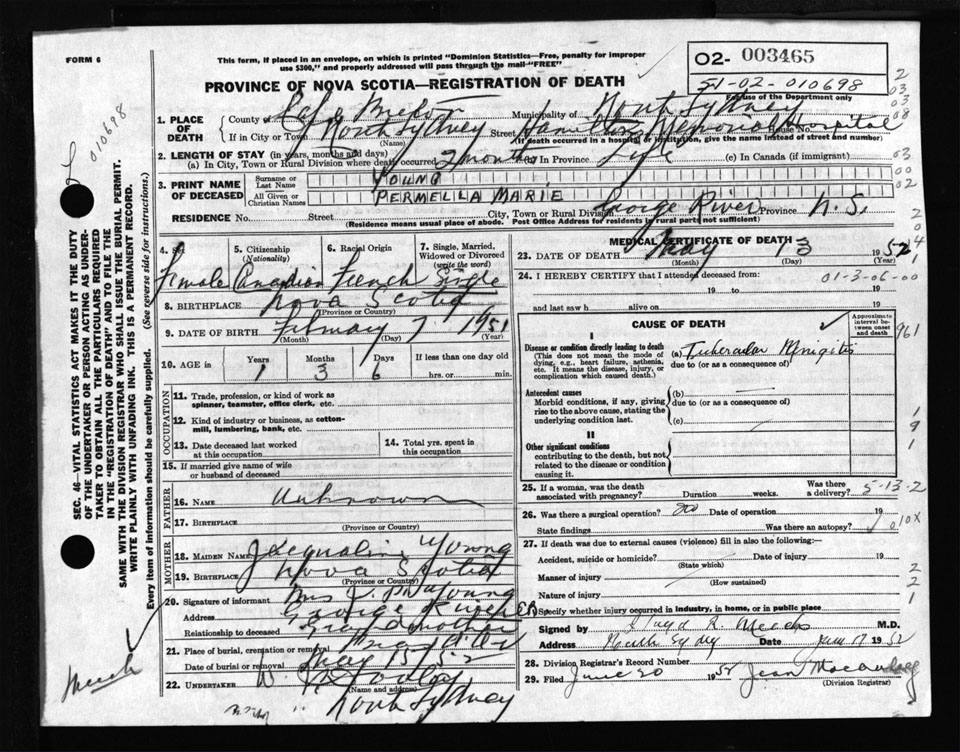 FORM 6
This form, if placed in an envelope, on which is printed "Dominion Statistics—Free, penalty for improper
use $300," and properly addressed will pass through the mail "FREE"
02- 003465
51-02-010698
For use of the Department only
PROVINCE OF NOVA SCOTIA—REGISTRATION OF DEATH
010698
1. PLACE OF DEATH
County of Cape Breton Municipality of North Sydney
If in City or Town North Sydney Street Hamilton Memorial Hospital House No.
(Name) (If death occurred in a hospital or institution, give the name instead of street and number)
2. LENGTH OF STAY (in years, months and days)
(a) In City, Town or Rural Division where death occurred 2 months (b) In Province Life (c) In Canada (if immigrant)
3. PRINT NAME OF DECEASED
Surname or Last Name YOUNG
All Given or Christian Names PERMELLA MARIE
RESIDENCE No. Street City, Town or Rural Division George River Province N.S.
(Residence means usual place of abode. Post Office Address for residents in rural parts not sufficient)
4. Female
5. Citizenship (Nationality) Canadian
6. Racial Origin French
7. Single, Married, Widowed or Divorced (write the word) Single
8. BIRTHPLACE Nova Scotia
(Province or Country)
9. DATE OF BIRTH February 7 1951
(Month) (Day) (Year)
10. AGE in Years 1 Months 3 Days 6 If less than one day old hrs. or min.
11. Trade, profession, or kind of work as
spinner, teamster, office clerk, etc.
12. Kind of industry or business, as cotton-
mill, lumbering, bank, etc.
13. Date deceased last worked
at this occupation
14. Total yrs. spent in
this occupation
15. If married give name of wife
or husband of deceased
FATHER
16. NAME Unknown
17. BIRTHPLACE
(Province or Country)
MOTHER
18. MAIDEN NAME Jacqualine Young
19. BIRTHPLACE Nova Scotia
(Province or Country)
20. Signature of informant Mrs Young
Address George River
Relationship to deceased Grandmother
21. Place of burial, cremation or removal
Date of burial or removal May 15 52
22. UNDERTAKER W.
(Name and address)
North Sydney
MEDICAL CERTIFICATE OF DEATH
23. DATE OF DEATH May 13 1952
(Month) (Day) (Year)
24. I HEREBY CERTIFY that I attended deceased from:
01-3-06-00
19 to 19
and last saw h alive on 19
CAUSE OF DEATH
Approximate interval between onset and death
I
Disease or condition directly leading to death
(This does not mean the mode of
dying, e.g., heart failure, asthenia,
etc. It means the disease, injury, or
complication which caused death.)
(a) Tubercular Mengitis
due to (or as a consequence of)
Antecedent causes
Morbid conditions, if any, giving
rise to the above cause, stating the
underlying condition last.
(b)
due to (or as a consequence of)
(c)
II
Other significant conditions
contributing to the death, but not
related to the disease or condition
causing it.
25. If a woman, was the death
associated with pregnancy? Duration weeks. Was there a delivery? 5-13-2
26. Was there a surgical operation? no Date of operation 19
State findings Was there an autopsy?
27. If death was due to external causes (violence) fill in also the following:—
Accident, suicide or homicide? Date of injury 19
(State which)
Manner of injury
(How sustained)
Nature of injury
Specify whether injury occurred in industry, in home, or in public place
Signed by M.D.
Address North Sydney Date June 17 1952
28. Division Registrar's Record Number
29. Filed June 20 1952 Jean
(Division Registrar)
SEC. 46—VITAL STATISTICS ACT MAKES IT THE DUTY
OF THE UNDERTAKER OR PERSON ACTING AS UNDER-
TAKER TO OBTAIN ALL THE PARTICULARS REQUIRED
IN THE "REGISTRATION OF DEATH" AND TO FILE THE
SAME WITH THE DIVISION REGISTRAR WHO SHALL ISSUE THE BURIAL PERMIT.
WRITE PLAINLY WITH UNFADING INK. THIS IS A PERMANENT RECORD.
Every item of information should be carefully supplied. (See reverse side for instructions.)